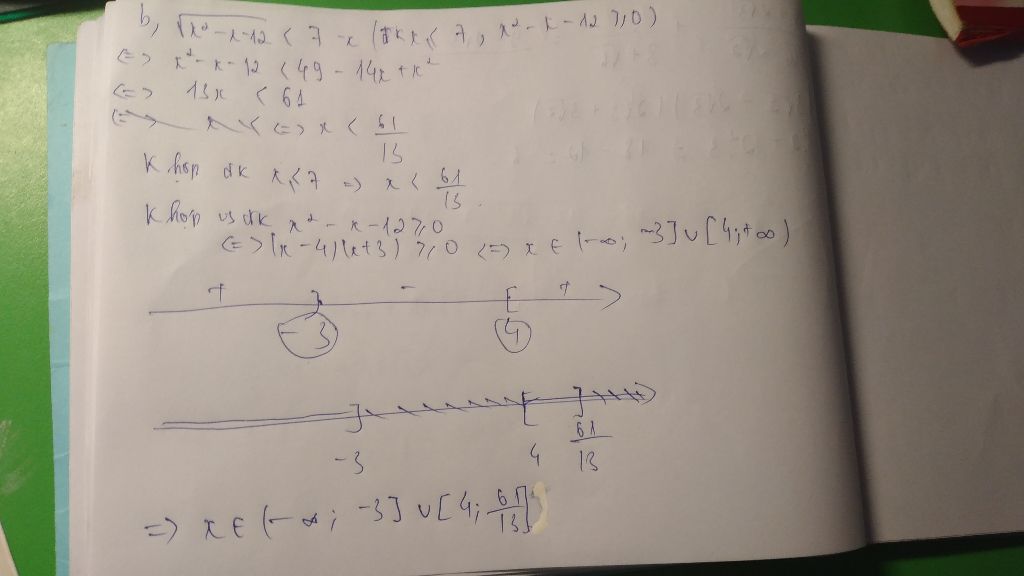 b, √x² - x - 12 < 7 - x (ĐK x ≤ 7, x² - x - 12 ≥ 0)
<=> x² - x - 12 < 49 - 14x + x²
<=> 13x < 61
<=> x < <=> x < 61/13
K hợp đk x ≤ 7 => x < 61/13.
K hợp vs đk x² - x - 12 ≥ 0
<=> (x - 4)(x + 3) ≥ 0 <=> x ∈ (-∞; -3] ∪ [4; +∞)
+ ] - [ +
-3 4
] [ ]
-3 4 61/13
=> x ∈ (-∞; -3] ∪ [4; 61/13)